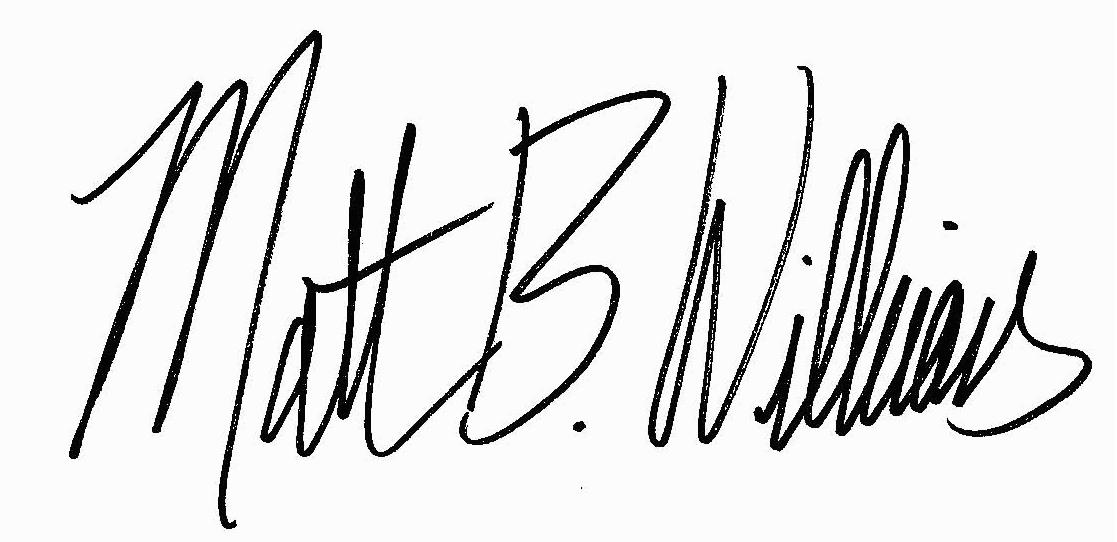 Matt B. Williams